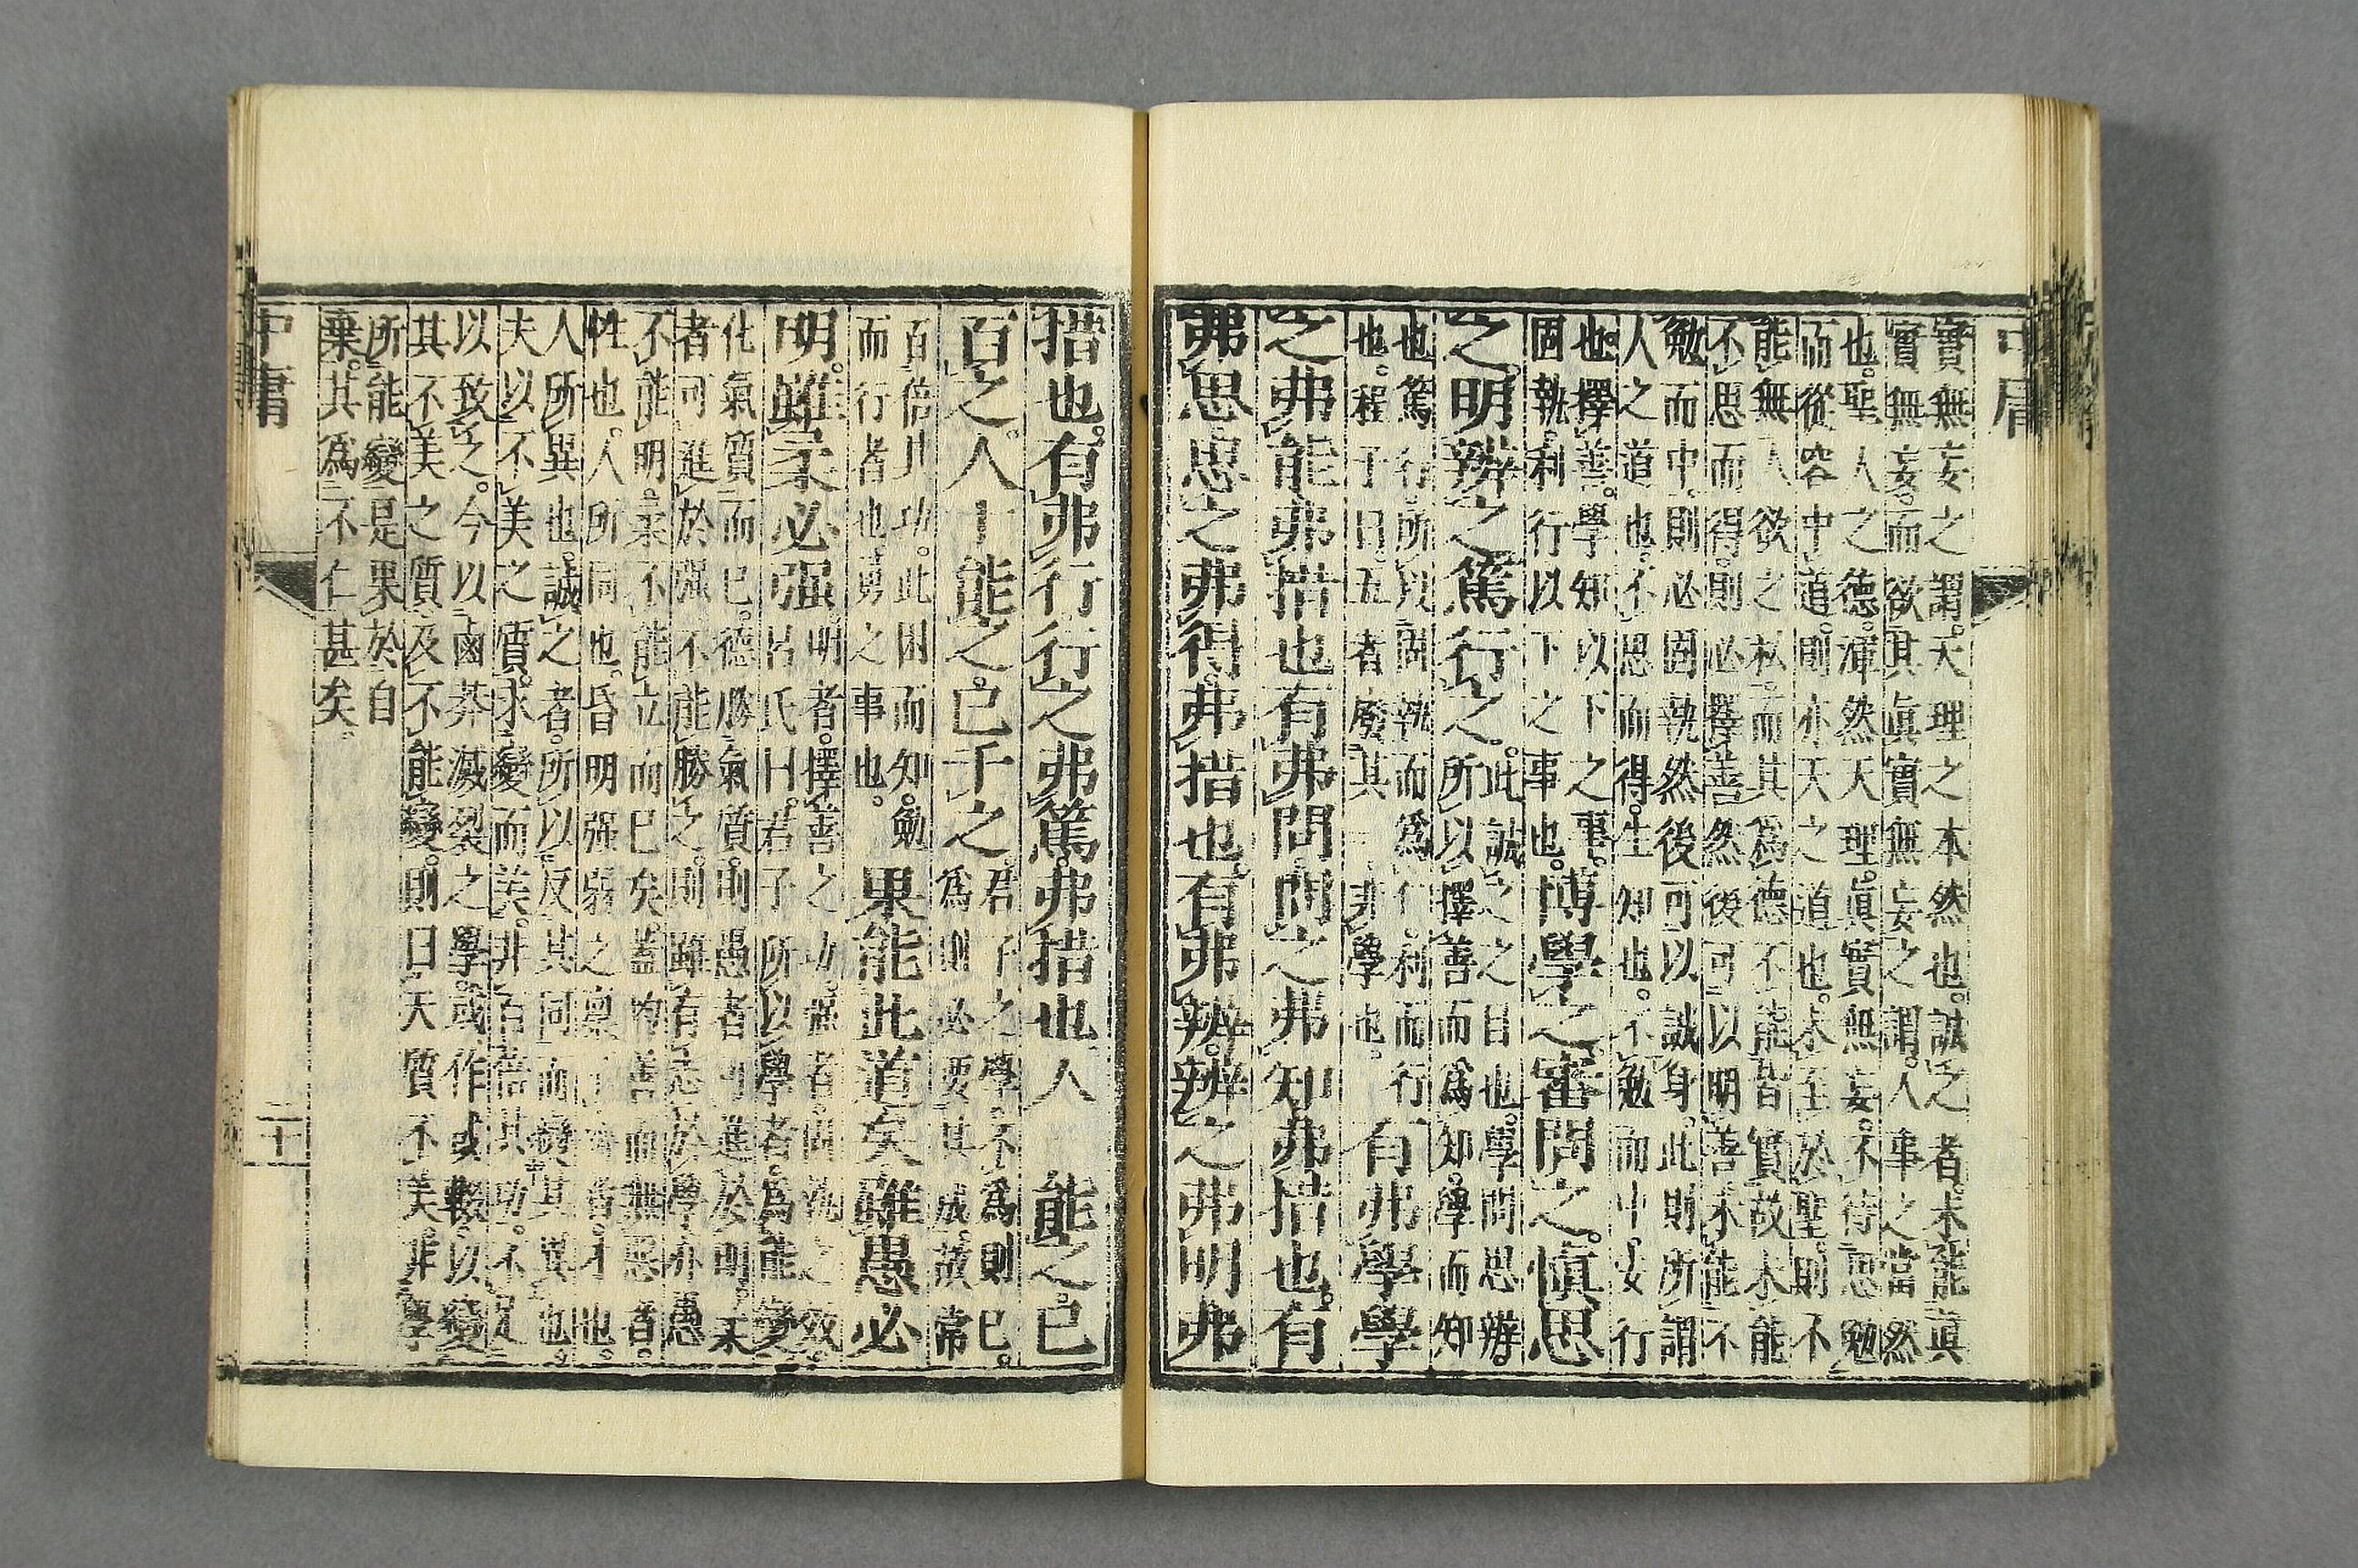 中庸
實無妄之謂。天理之本然也。誠之者。未能眞
實無妄。而欲其眞實無妄之謂。人事之當然
也。聖人之德。渾然天理。眞實無妄。不待思勉
而從容中道。則亦天之道也。未至於聖。則不
能無人欲之私。而其爲德不能皆實。故未能
不思而得。則必擇善。然後可以明善。未能不
勉而中。則必固執。然後可以誠身。此則所謂
人之道也。不思而得。生知也。不勉而中。安行
也。擇善。學知以下之事。
固執。利行以下之事也。
博學之。審問之。愼思
之。明辨之。篤行之。
此誠之之目也。學問思辨。
所以擇善而爲知。學而知
也。篤行。所以固執而爲仁。利而行
也。程子曰。五者廢其一。非學也。
有弗學學
之弗能弗措也有弗問問之弗知弗措也。有
弗思思之弗得。弗措也。有弗辨。辨之弗明弗
措也。有弗行行之弗篤。弗措也。人一能之。己
百之。人十能之。己千之。
君子之學。不爲則已。
爲則必要其成。故常
百倍其功。此困而知。勉
而行者也。勇之事也。
果能此道矣。雖愚必
明。雖柔必强。
明者。擇善之功。强者。固執之效。
呂氏曰。君子所以學者。爲能變
化氣質而已。德勝氣質。則愚者可進於明。柔
者可進於强。不能勝之。則雖有志於學。亦愚
不能明。柔不能立而已矣。蓋均善而無惡者。
性也。人所同也。昏明强弱之稟不齊者。才也。
人所異也。誠之者。所以反其同而變其異也。
夫以不美之質。求變而美。非百倍其功。不足
以致之。今以鹵莽滅裂之學。或作或輟。以變
其不美之質。及不能變。則曰天質不美。非學
所能變。是果於自
棄。其爲不仁甚矣。
中庸
二十